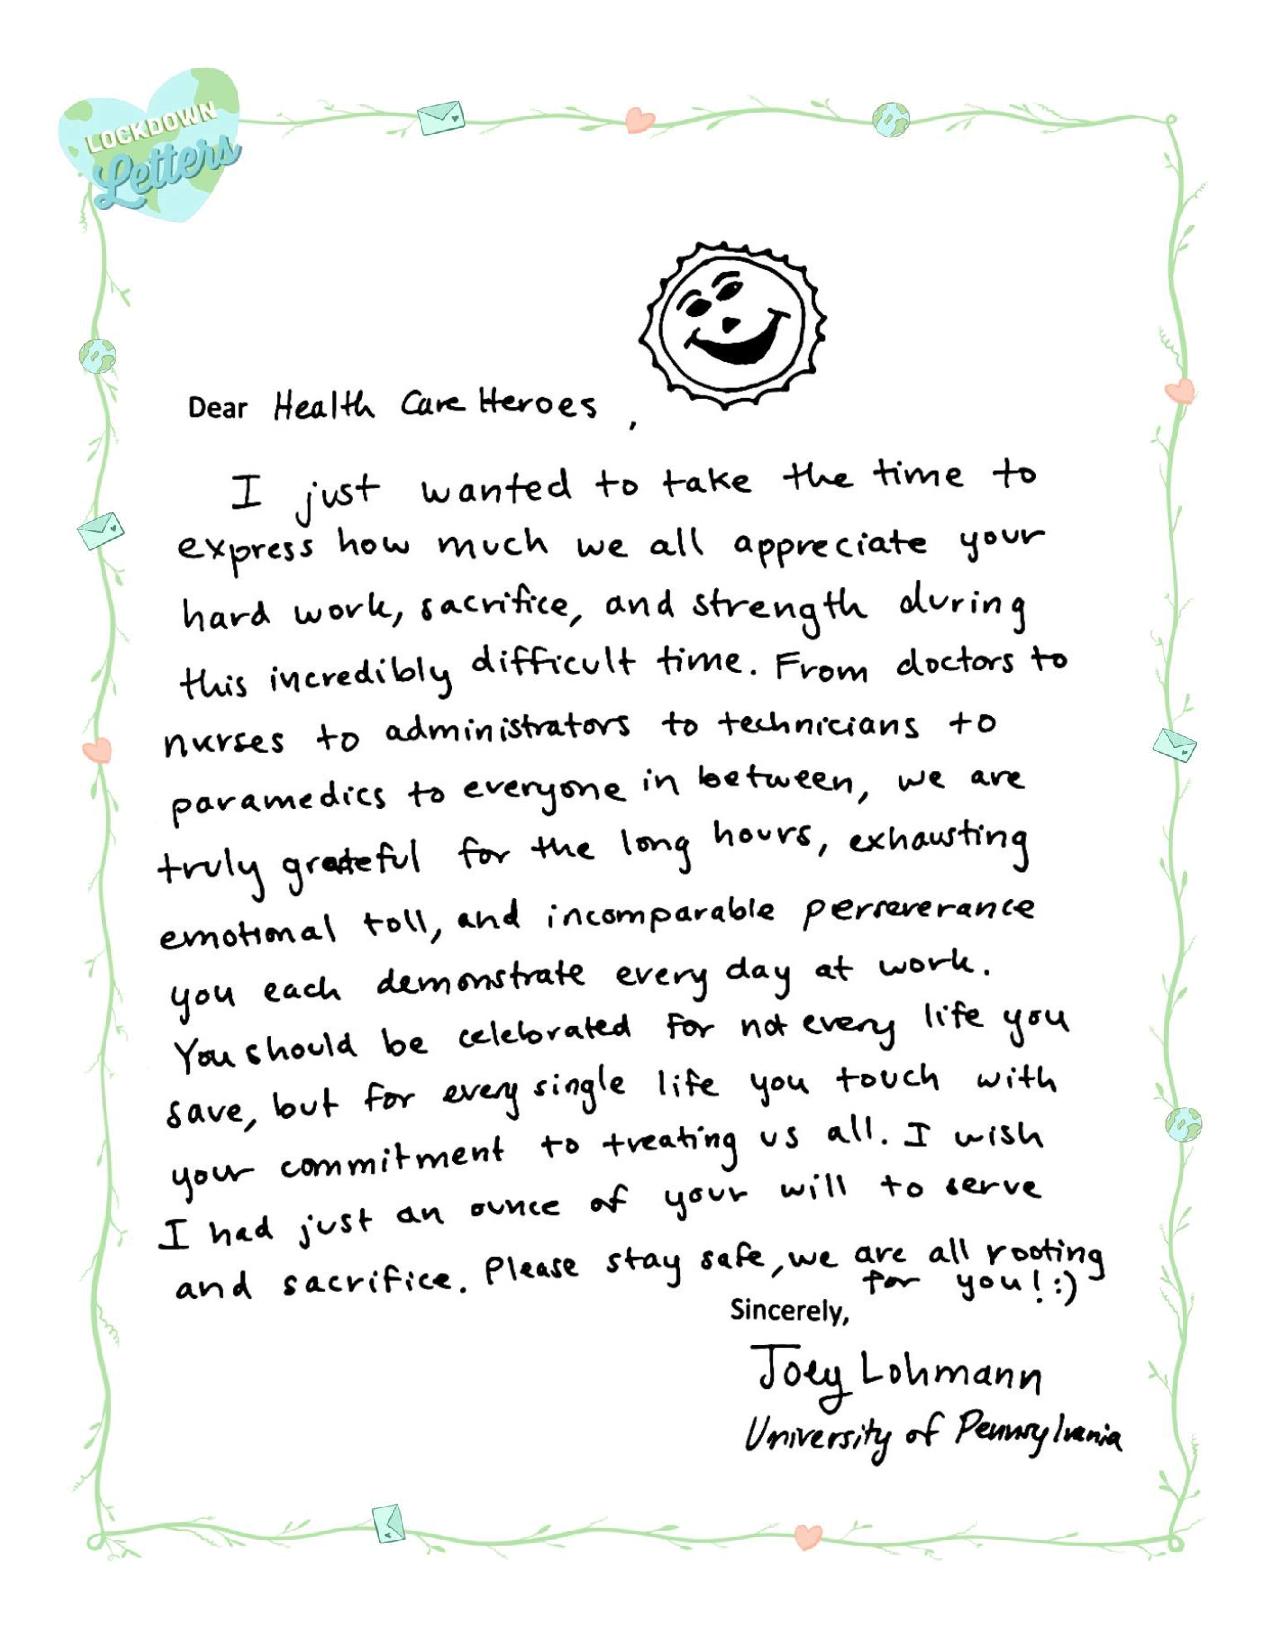 LOCKDOWN
Letters
Dear Health Care Heroes,
I just wanted to take the time to
express how much we all appreciate your
hard work, sacrifice, and strength during
this incredibly difficult time. From doctors to
nurses to administrators to technicians to
paramedics to everyone in between, we are
truly grateful for the long hours, exhausting
emotional toll, and incomparable perserverance
you each demonstrate every day at work.
You should be celebrated for not every life you
save, but for every single life you touch with
your commitment to treating us all. I wish
I had just an ounce of your will to serve
and sacrifice. Please stay safe, we are all rooting
for you! :)
Sincerely,
Joey Lohmann
University of Pennsylvania